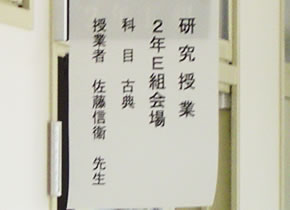 研究授業
2年E組会場
科目 古典
授業者 佐藤信衛 先生